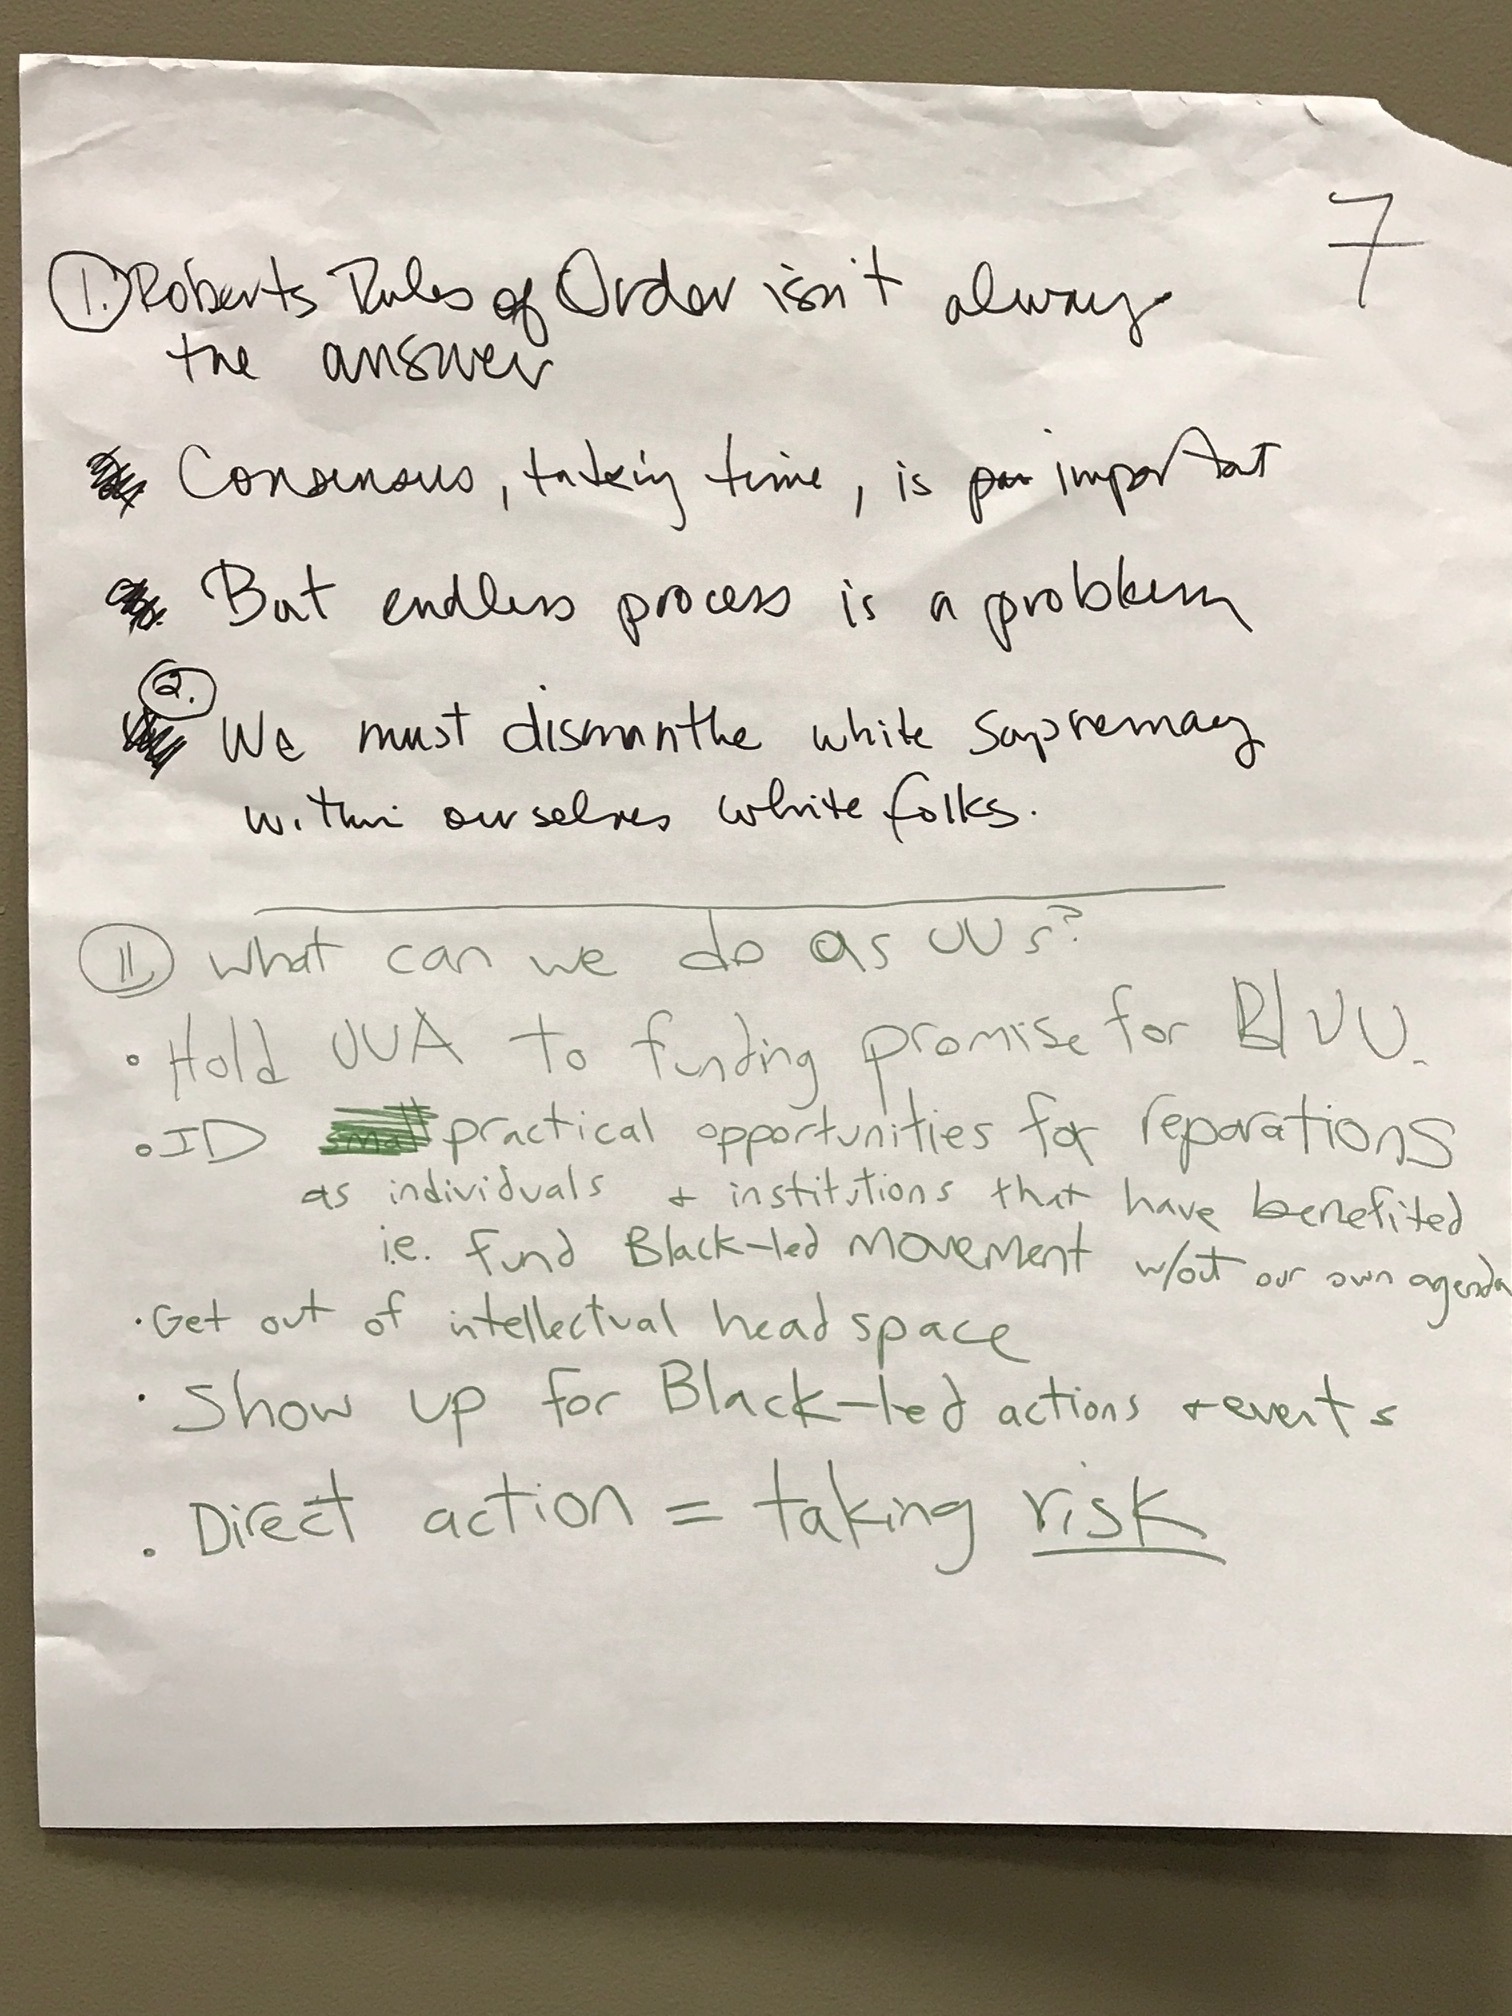 7
1. Roberts Rules of Order isn't always
the answer
Consensus, taking time, is important
But endless process is a problem
2.
We must dismantle white supremacy
within ourselves white folks.
II. What can we do as UUs?
• Hold UUA to funding promise for BLUU.
• ID practical opportunities for reparations
as individuals + institutions that have benefited
i.e. fund Black-led movement w/out our own agenda
• Get out of intellectual head space
• Show up for Black-led actions + events
• Direct action = taking risk